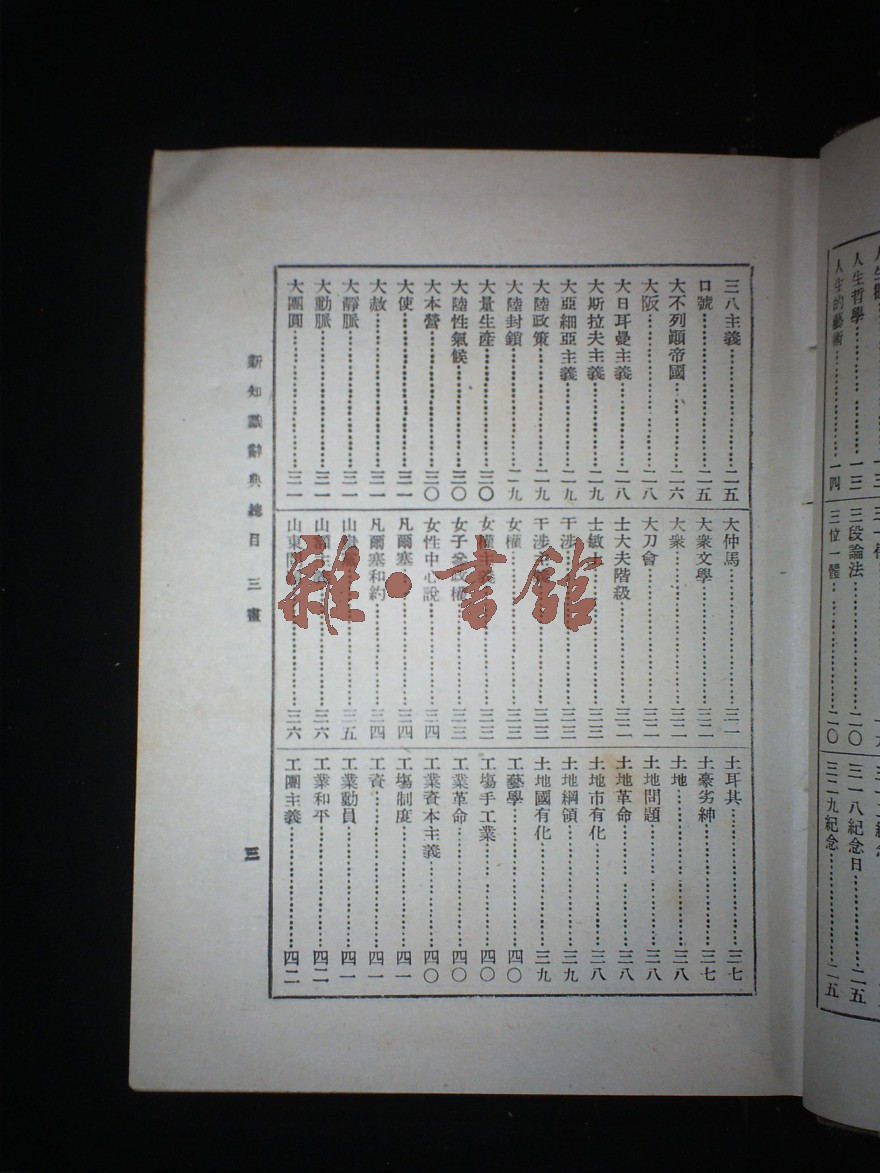 人生哲學……………一三
人生的藝術……………一四
三段論法……………二〇
三位一體……………二〇
三一八紀念日……………二五
三二九紀念……………二五
三八主義……………二五
口號……………二五
大不列顛帝國……………二六
大阪……………二八
大日耳曼主義……………二八
大斯拉夫主義……………二九
大亞細亞主義……………二九
大陸政策……………二九
大陸封鎖……………二九
大量生產……………三〇
大陸性氣候……………三〇
大本營……………三〇
大使……………三一
大赦……………三一
大靜脈……………三一
大動脈……………三一
大團圓……………三一
大仲馬……………三二
大衆文學……………三二
大衆……………三二
大刀會……………三二
士大夫階級……………三二
士敏土……………三三
干涉……………三三
干涉主義……………三三
女權……………三三
女權主義……………三三
女子參政權……………三三
女性中心說……………三四
凡爾塞……………三四
凡爾塞和約……………三四
山……………三五
山額主義……………三六
山東……………三六
土耳其……………三七
土豪劣紳……………三七
土地……………三八
土地問題……………三八
土地革命……………三八
土地市有化……………三八
土地綱領……………三九
土地國有化……………三九
工藝學……………四〇
工場手工業……………四〇
工業革命……………四〇
工業資本主義……………四〇
工場制度……………四一
工資……………四一
工業動員……………四一
工業和平……………四二
工團主義……………四二
新知識辭典總目 三畫
三
雜·書館